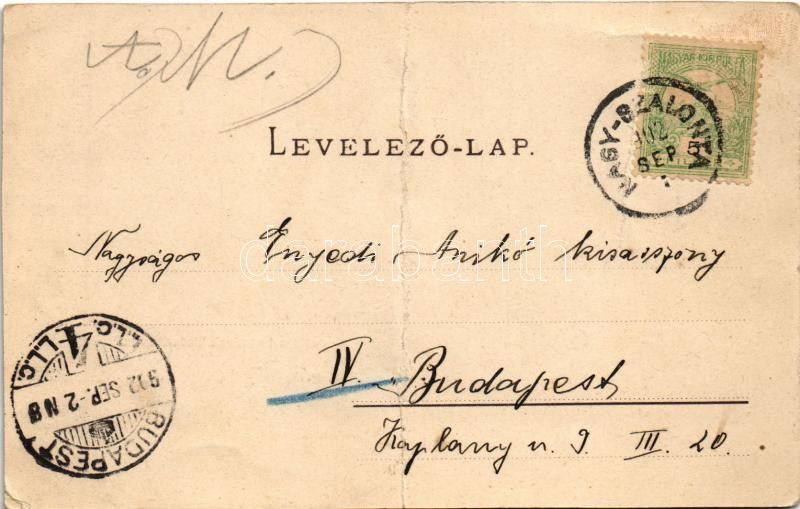 LEVELEZŐ-LAP.
MAGYAR KIR. POSTA
NAGY-SZALONTA
902
SEP
Nagyságos Enyedi Anikó kisasszony
IV. Budapest
Kaplony u. 9 III. 20.
BUDAPEST
902 SEP.-2 N8
4 L.L.C.
darabanth